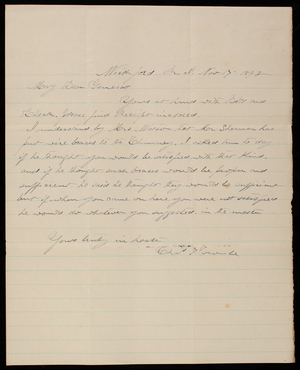 Wickford, R. I. Nov. 17 1892
My Dear General
Yours at hand with Bills and
Check, please find Receipt inclosed.
I understand by this that Mr Sherman has
put wire braces to the Chimney. I asked him to day
if he thought you would be satisfied with that kind,
and if he thought such braces would be proper and
sufficient he said he thought they would be sufficient
but if when you came on here you were not satisfied
he would do whatever you suggested in the matter
Yours truly in haste